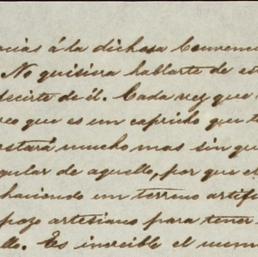 cias á la dichosa Convenc
. No quisiera hablarte de es
decirte de él. Cada vez que
eo que es un capricho que t
estará mucho mas sin qu
gular de aquello, por que e
haciendo un terreno artifi
pozo artesiano para tener
llo. Es increible el